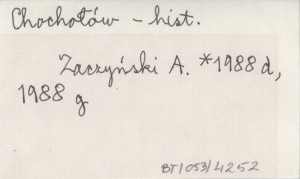 Chochołów - hist.
Zaczyński A. *1988 d,
1988 g
BT/053/4252